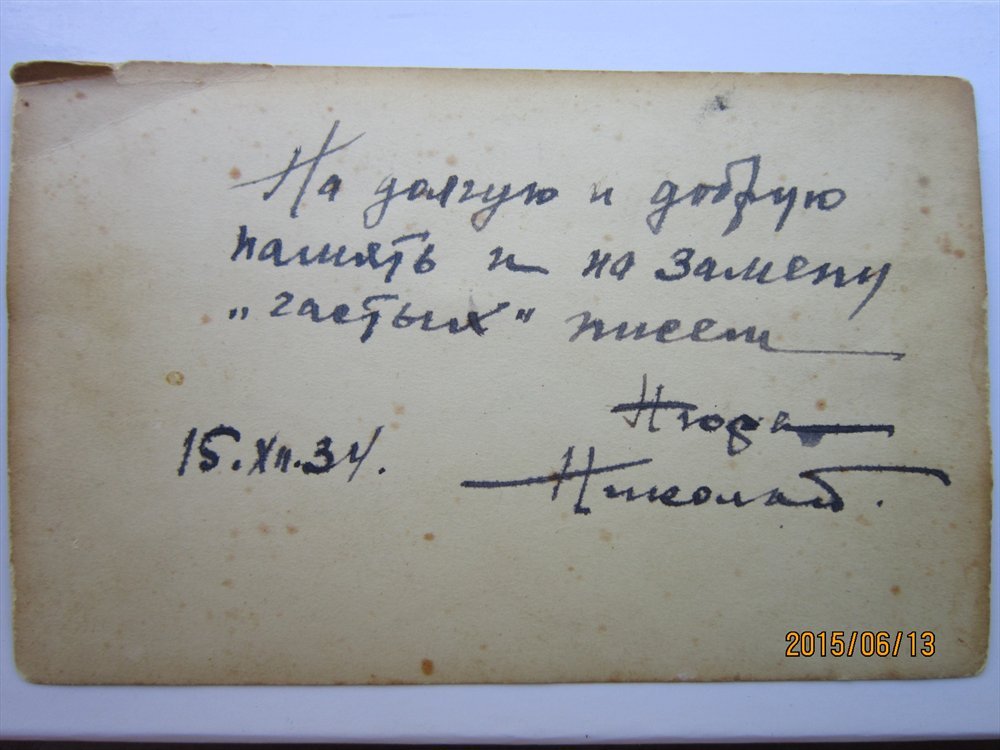 На долгую и добрую
память и на замену
„частых" писем
Нюра
Николай.
15.XII.34.
2015/06/13